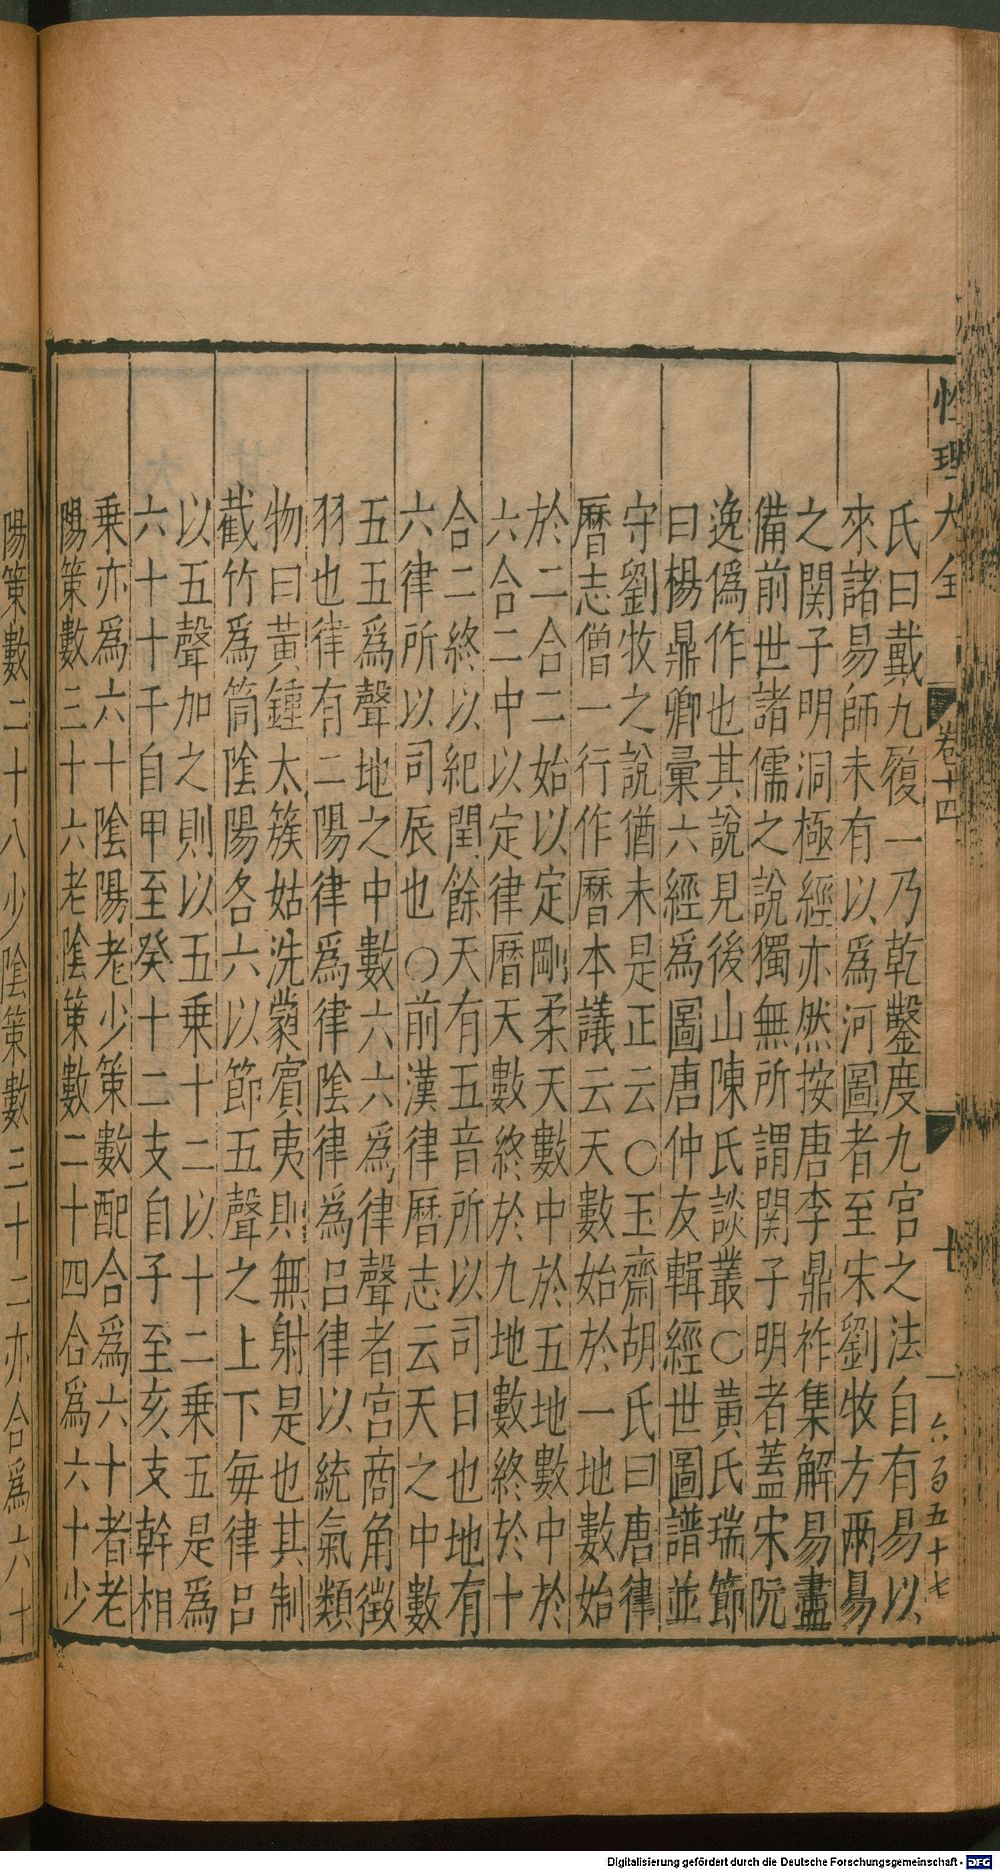 性理大全 卷十四 十 六百五十七
氏曰戴九履一乃乾鑿度九宮之法自有易以
來諸易師未有以爲河圖者至宋劉牧方兩易
之関子明洞極經亦然按唐李鼎祚集解易盡
備前世諸儒之說獨無所謂関子明者蓋宋阮
逸僞作也其說見後山陳氏談叢○黃氏瑞節
曰楊鼎卿彙六經爲圖唐仲友輯經世圖譜並
守劉牧之說猶未是正云○玉齋胡氏曰唐律
曆志僧一行作曆本議云天數始於一地數始
於二合二始以定剛柔天數中於五地數中於
六合二中以定律曆天數終於九地數終於十
合二終以紀閏餘天有五音所以司日也地有
六律所以司辰也○前漢律曆志云天之中數
五五爲聲地之中數六六爲律聲者宮商角徵
羽也律有二陽律爲律陰律爲呂律以統氣類
物曰黃鍾太簇姑洗蕤賓夷則無射是也其制
截竹爲筒陰陽各六以節五聲之上下毎律呂
以五聲加之則以五乗十二以十二乗五是爲
六十十干自甲至癸十二支自子至亥支幹相
乗亦爲六十陰陽老少策數配合爲六十者老
陽策數三十六老陰策數二十四合爲六十少
陽策數二十八少陰策數三十二亦合爲六十
Digitalisierung gefördert durch die Deutsche Forschungsgemeinschaft - DFG